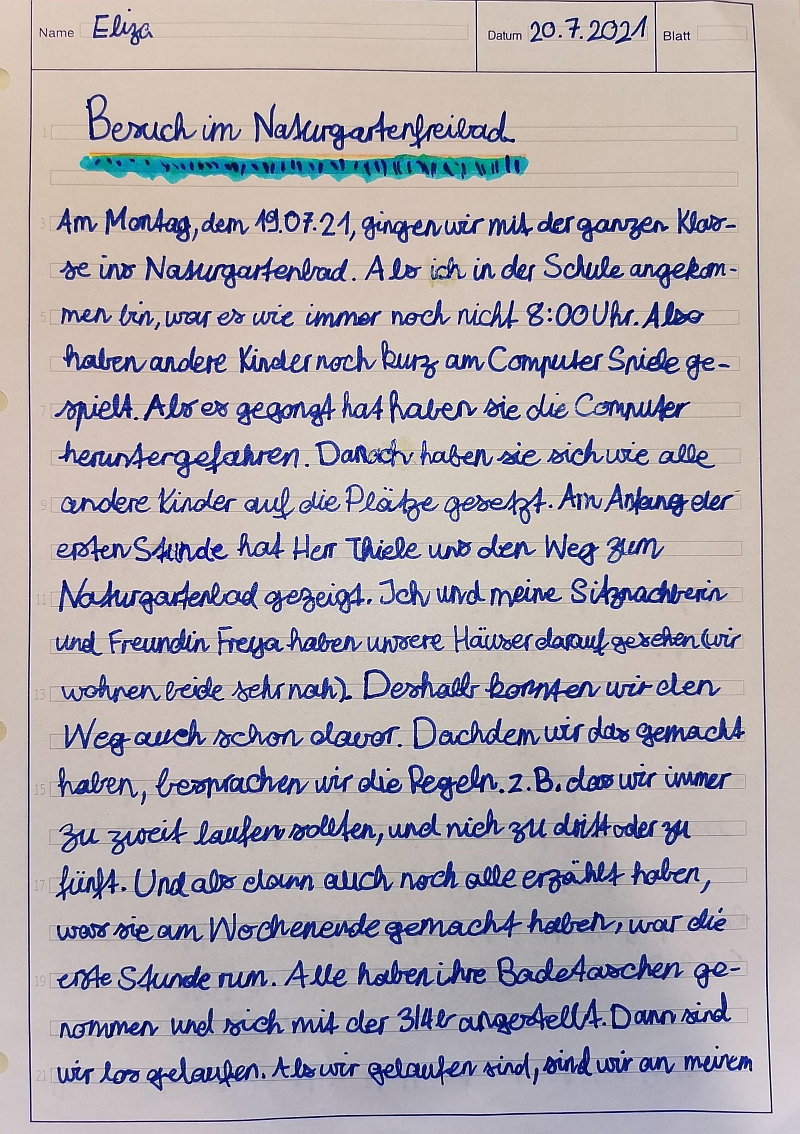 Name Eliza Datum 20.7.2021 Blatt
1 Besuch im Naturgartenfreibad
3 Am Montag, dem 19.07.21, gingen wir mit der ganzen Klas-
se ins Naturgartenbad. Als ich in der Schule angekom-
5 men bin, war es wie immer noch nicht 8:00 Uhr. Also
haben andere Kinder noch kurz am Computer Spiele ge-
7 spielt. Als es gegongt hat haben sie die Computer
heruntergefahren. Danach haben sie sich wie alle
9 andere Kinder auf die Plätze gesetzt. Am Anfang der
ersten Stunde hat Herr Thiele uns den Weg zum
11 Naturgartenbad gezeigt. Ich und meine Sitznachberin
und Freundin Freya haben unsere Häuser darauf gesehen (wir
13 wohnen beide sehr nah). Deshalb konnten wir den
Weg auch schon davor. Dachdem wir das gemacht
15 haben, besprachen wir die Regeln. z.B. das wir immer
zu zweit laufen sollten, und nich zu dritt oder zu
17 fünft. Und als dann auch noch alle erzählt haben,
was sie am Wochenende gemacht haben, war die
19 erste Stunde rum. Alle haben ihre Badetaschen ge-
nommen und sich mit der 3/4b angestellt. Dann sind
21 wir los gelaufen. Als wir gelaufen sind, sind wir an meinem